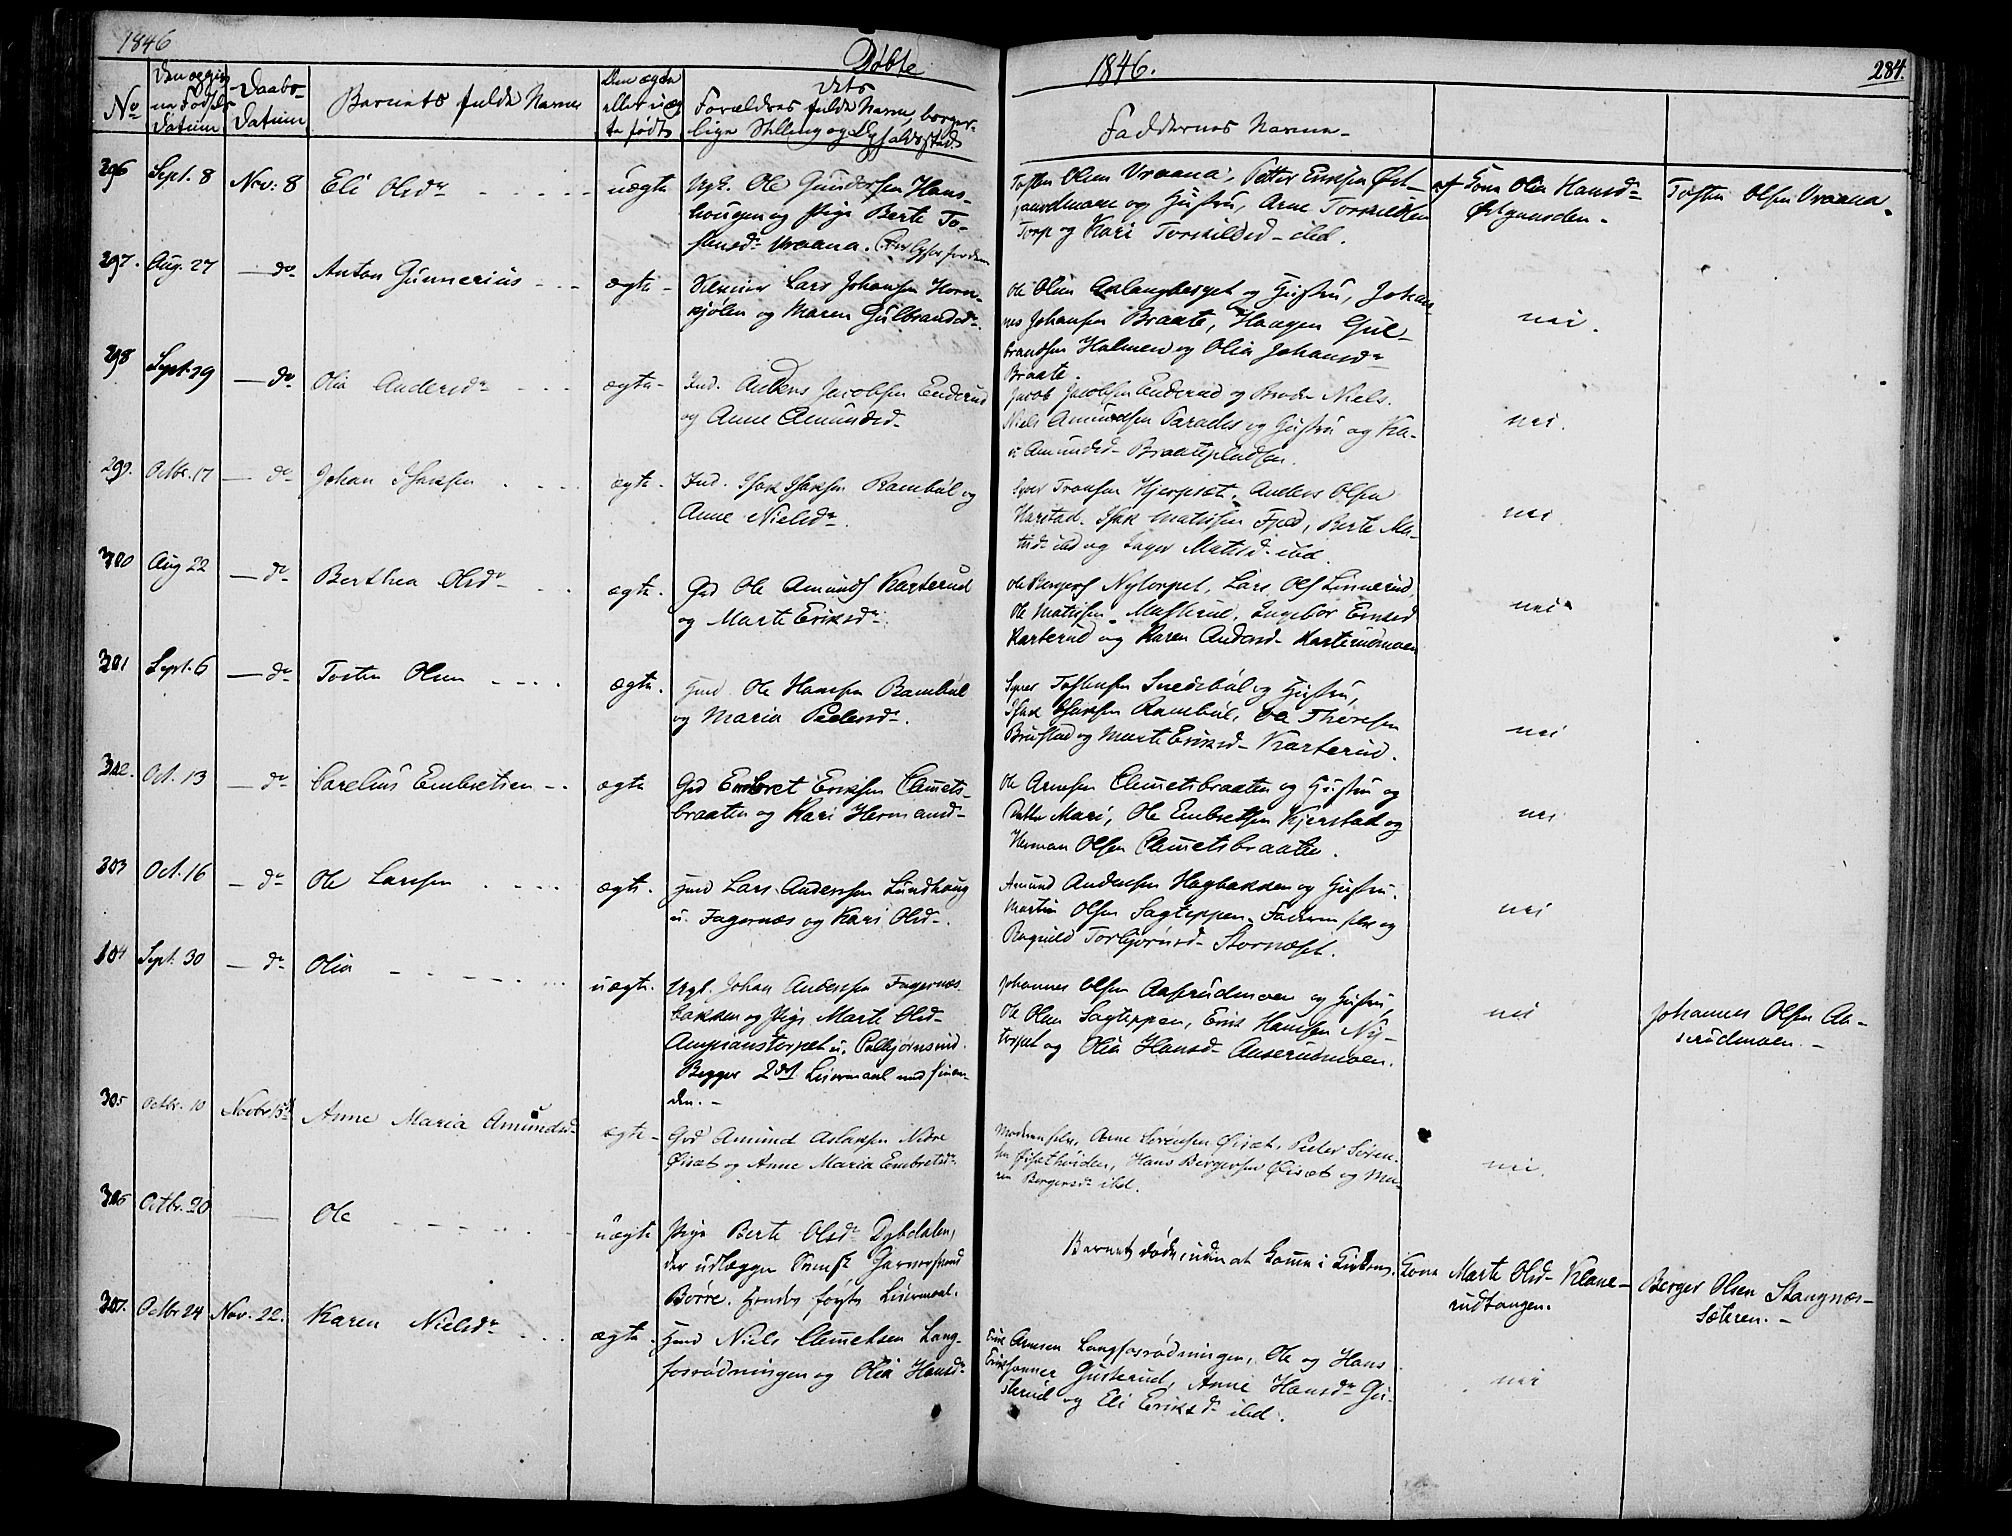 1846
Døbte
1846.
284.
No
Datum
Daabs-
Datum
Barnets fulde Navne
eller uæg
te født
Forældres fulde Navne, borger-
lige Stilling og
Faddernes Navne
296 Sept. 8 Nov. 8 Eli Olsdr uægte
Ungk. Ole Gundersen Hans-
hougen og Pige Berte To-
stensdr Vraana.
Tosten Olsen Vraana, Petter Eriksen Øst-
og Hustru, Arne Torkildsen
Torp og Kari Torkildsd ibd.
af Kone Olia Hansdr
Tosten Olsen Vraana.
297. Aug. 27 — do Anton Gunnerius ægte
Lars Johansen Horn-
kjølen og Maren Gulbrandsd.
Ole Olsen Aslangberget og Hustru, Johan
nes Johansen Braate, Haagen Gul-
brandsen Halmen og Olia Johansdr
Braate.
nei.
298 Sept. 29 — do Olia Andersdr ægte
Ind. Anders Jacobsen Enderud
og Anne Amundsd
Jacob Jacobsen Enderud og Broder Niels.
Niels Amundsen Paradis og Hustru og Ka-
ri Amundsd Braatepladsen.
nei.
299. Octbr. 17 — do Johan Isaksen ægte
Ind. Isak Isaksen Rambøl og
Anne Nielsdr.
Syver Tronsen Hjerpset, Anders Olsen
Harstad. Isak Matisen Fjed, Berte Ma-
tisd ibd og Inger Matisd ibd.
nei
300 Aug 22 — do Berthea Olsdr ægte.
Grd Ole Amunds Karterud
og Marte Eriksdr.
Ole Bergers Nytorpet, Lars Ols Linnerud,
Ole Matisen Masterud, Ingebor Eriksd
Karterud og Karen Andersd Karterudmoen
nei
301 Sept. 6 — do Tosten Olsen ægte.
Hmd. Ole Hansen Rambøl
og Maria Pedersdr.
Syver Tostensen Snedsbøl og Hustru,
Isak Isaksen Rambøl, Ole Thoresen
Brustad og Marte Eriksd Karterud.
nei
302. Oct. 13 — do Carelius Embretsen ægte
Grd Embret Eriksen Clemets-
braaten og Kari Hermansd
Ole Arnesen Clemetsbraaten og Hustru og
Datter Mari, Ole Embretsen Kjerstad og
Herman Olsen Clemetsbraaten.
nei
303 Oct. 16 — do Ole Larssen ægte.
Hmd Lars Anderssen Lundhaug
u. Fagernæs og Kari Olsd.
Amund Andersen Hagbakken og Hustru.
Martin Olsen Sagteppen. Faderen selv og
Ragnild Torbjørnsd Stornæset.
nei
104 Sept. 30 — do Olia uægte.
Ungk. Johan Andersen Fagernæs-
bakken og Pige Marte Olsd
u. Pelbjørnsrud.
Begges 2det Leiermaal med hinan-
den.
Johannes Olsen Aaserudmoen og Hustru,
Ole Olsen Sagteppen, Erik Hansen Ny-
torpet og Olia Hansd Aaserudmoen.
nei
Johannes Olsen Aa-
serudmoen.
305 Octbr. 10 Novbr 15 Anne Maria Amundsd ægte
Grd Amund Aslaksen Nedre
Øiset og Anne Maria Embretsdr.
Moderen selv, Arne Sørensen Øiset, Peder Søren-
sen Øisethøiden, Hans Bergersen Øiset og Ma-
ren Bergersdr ibd.
nei.
306 Octbr. 20 Ole uægte
Pige Berte Olsdr Dybdalen,
der udlægger Svensk
Børre. Hendes første Leiermaal.
Barnet døde, uden at komme i Kirken.
Kone Marte Olsd Klane-
rudtangen.
Berger Olsen Stangnæs-
Sæteren.
307. Octbr 24 Nov. 22. Karen Nielsdr ægte.
Hmd Niels Clemetsen Lang-
forrødningen og Olia Hansdr
Erik Arnesen Langforrødningen, Ole og Hans
Erikssønner Gusterud, Anne Hansdr Gu-
sterud og Eli Eriksdr ibd.
nei